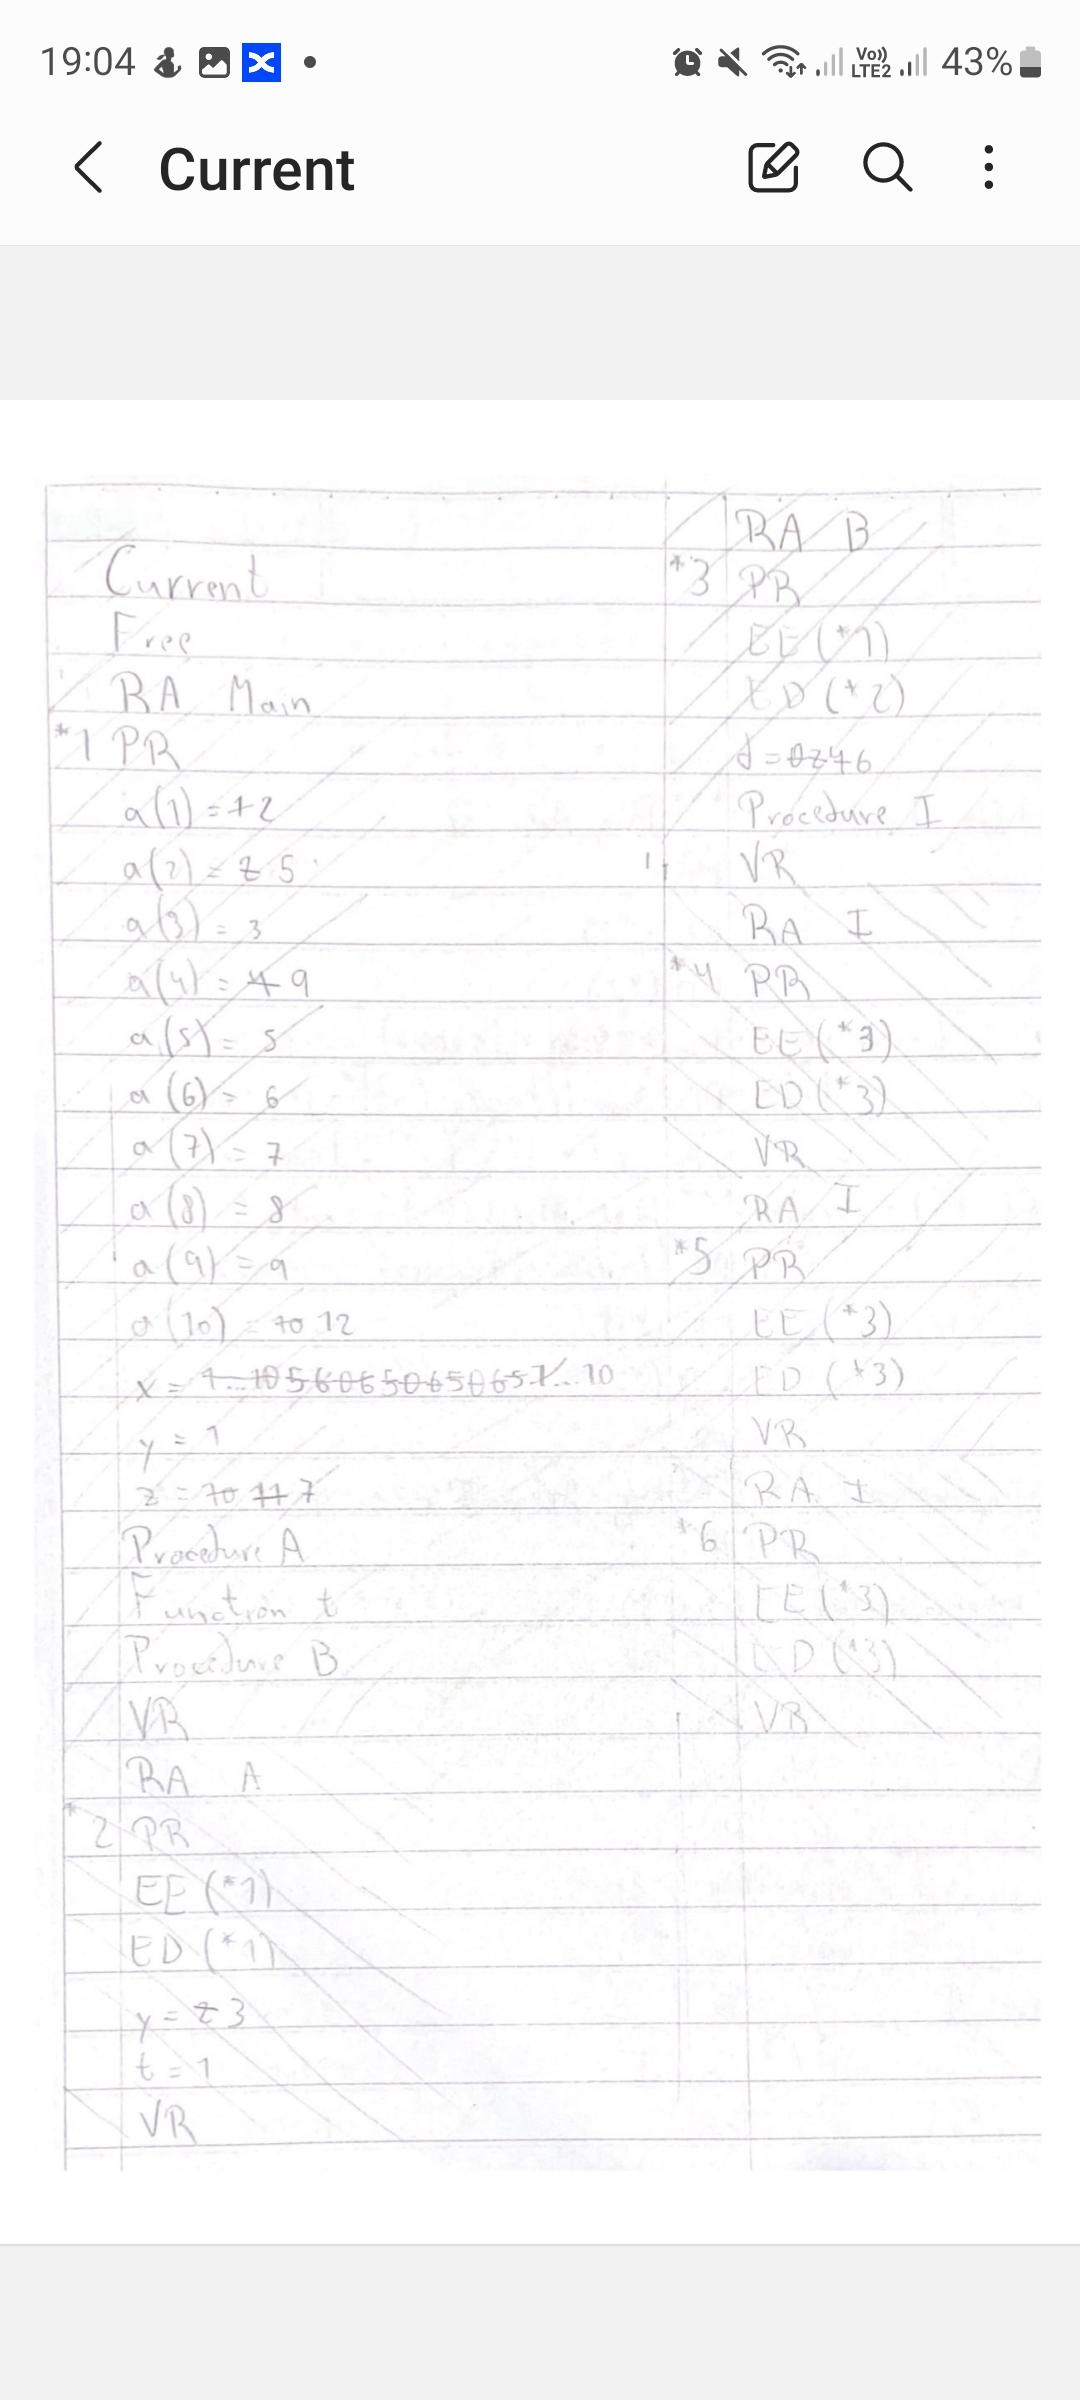 19:04
Vo))
LTE2
43%
Current
Current
Free
RA Main
*1 PR
a(1) = 12
a(2) = 2 5
a(3) = 3
a(4) = 4 9
a(5) = 5
a(6) = 6
a(7) = 7
a(8) = 8
a(9) = 9
a(10) = 10 12
x = 1...10 5 6 0 6 5 0 6 5 0 6 5 1...10
y = 1
z = 10 11 7
Procedure A
Function t
Procedure B
VR
RA A
*2 PR
EE (*1)
ED (*1)
y = 2 3
t = 1
VR
RA B
*3 PR
EE (*1)
ED (*2)
d = 0 2 4 6
Procedure I
VR
RA I
*4 PR
EE (*3)
ED (*3)
VR
RA I
*5 PR
EE (*3)
ED (*3)
VR
RA I
*6 PR
EE (*3)
ED (*3)
VR